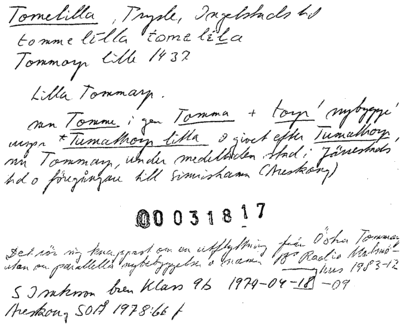 Tomelilla, Tryde, Ingelstads hd
tomme lilla tomelila
Tommarp lille 1437
Lilla Tommarp.
mn Tomme i gen Tomma + torp 'nybygge'
urspr *Tumathorp litla o givet efter Tumathorp,
nu Tommarp, under medeltiden stad i Järrestads
hd o föregångare till Simrishamn (Areskoug)
00031817
Det rör sig knappast om en utflyttning från Östra Tommarp
utan en parallella nybebyggelse o namn Radio Malmö-
hus 1983-12
S Isakson brev klass 9b 1979-04-18 -09
Areskoug SOÅ 1978:66 f